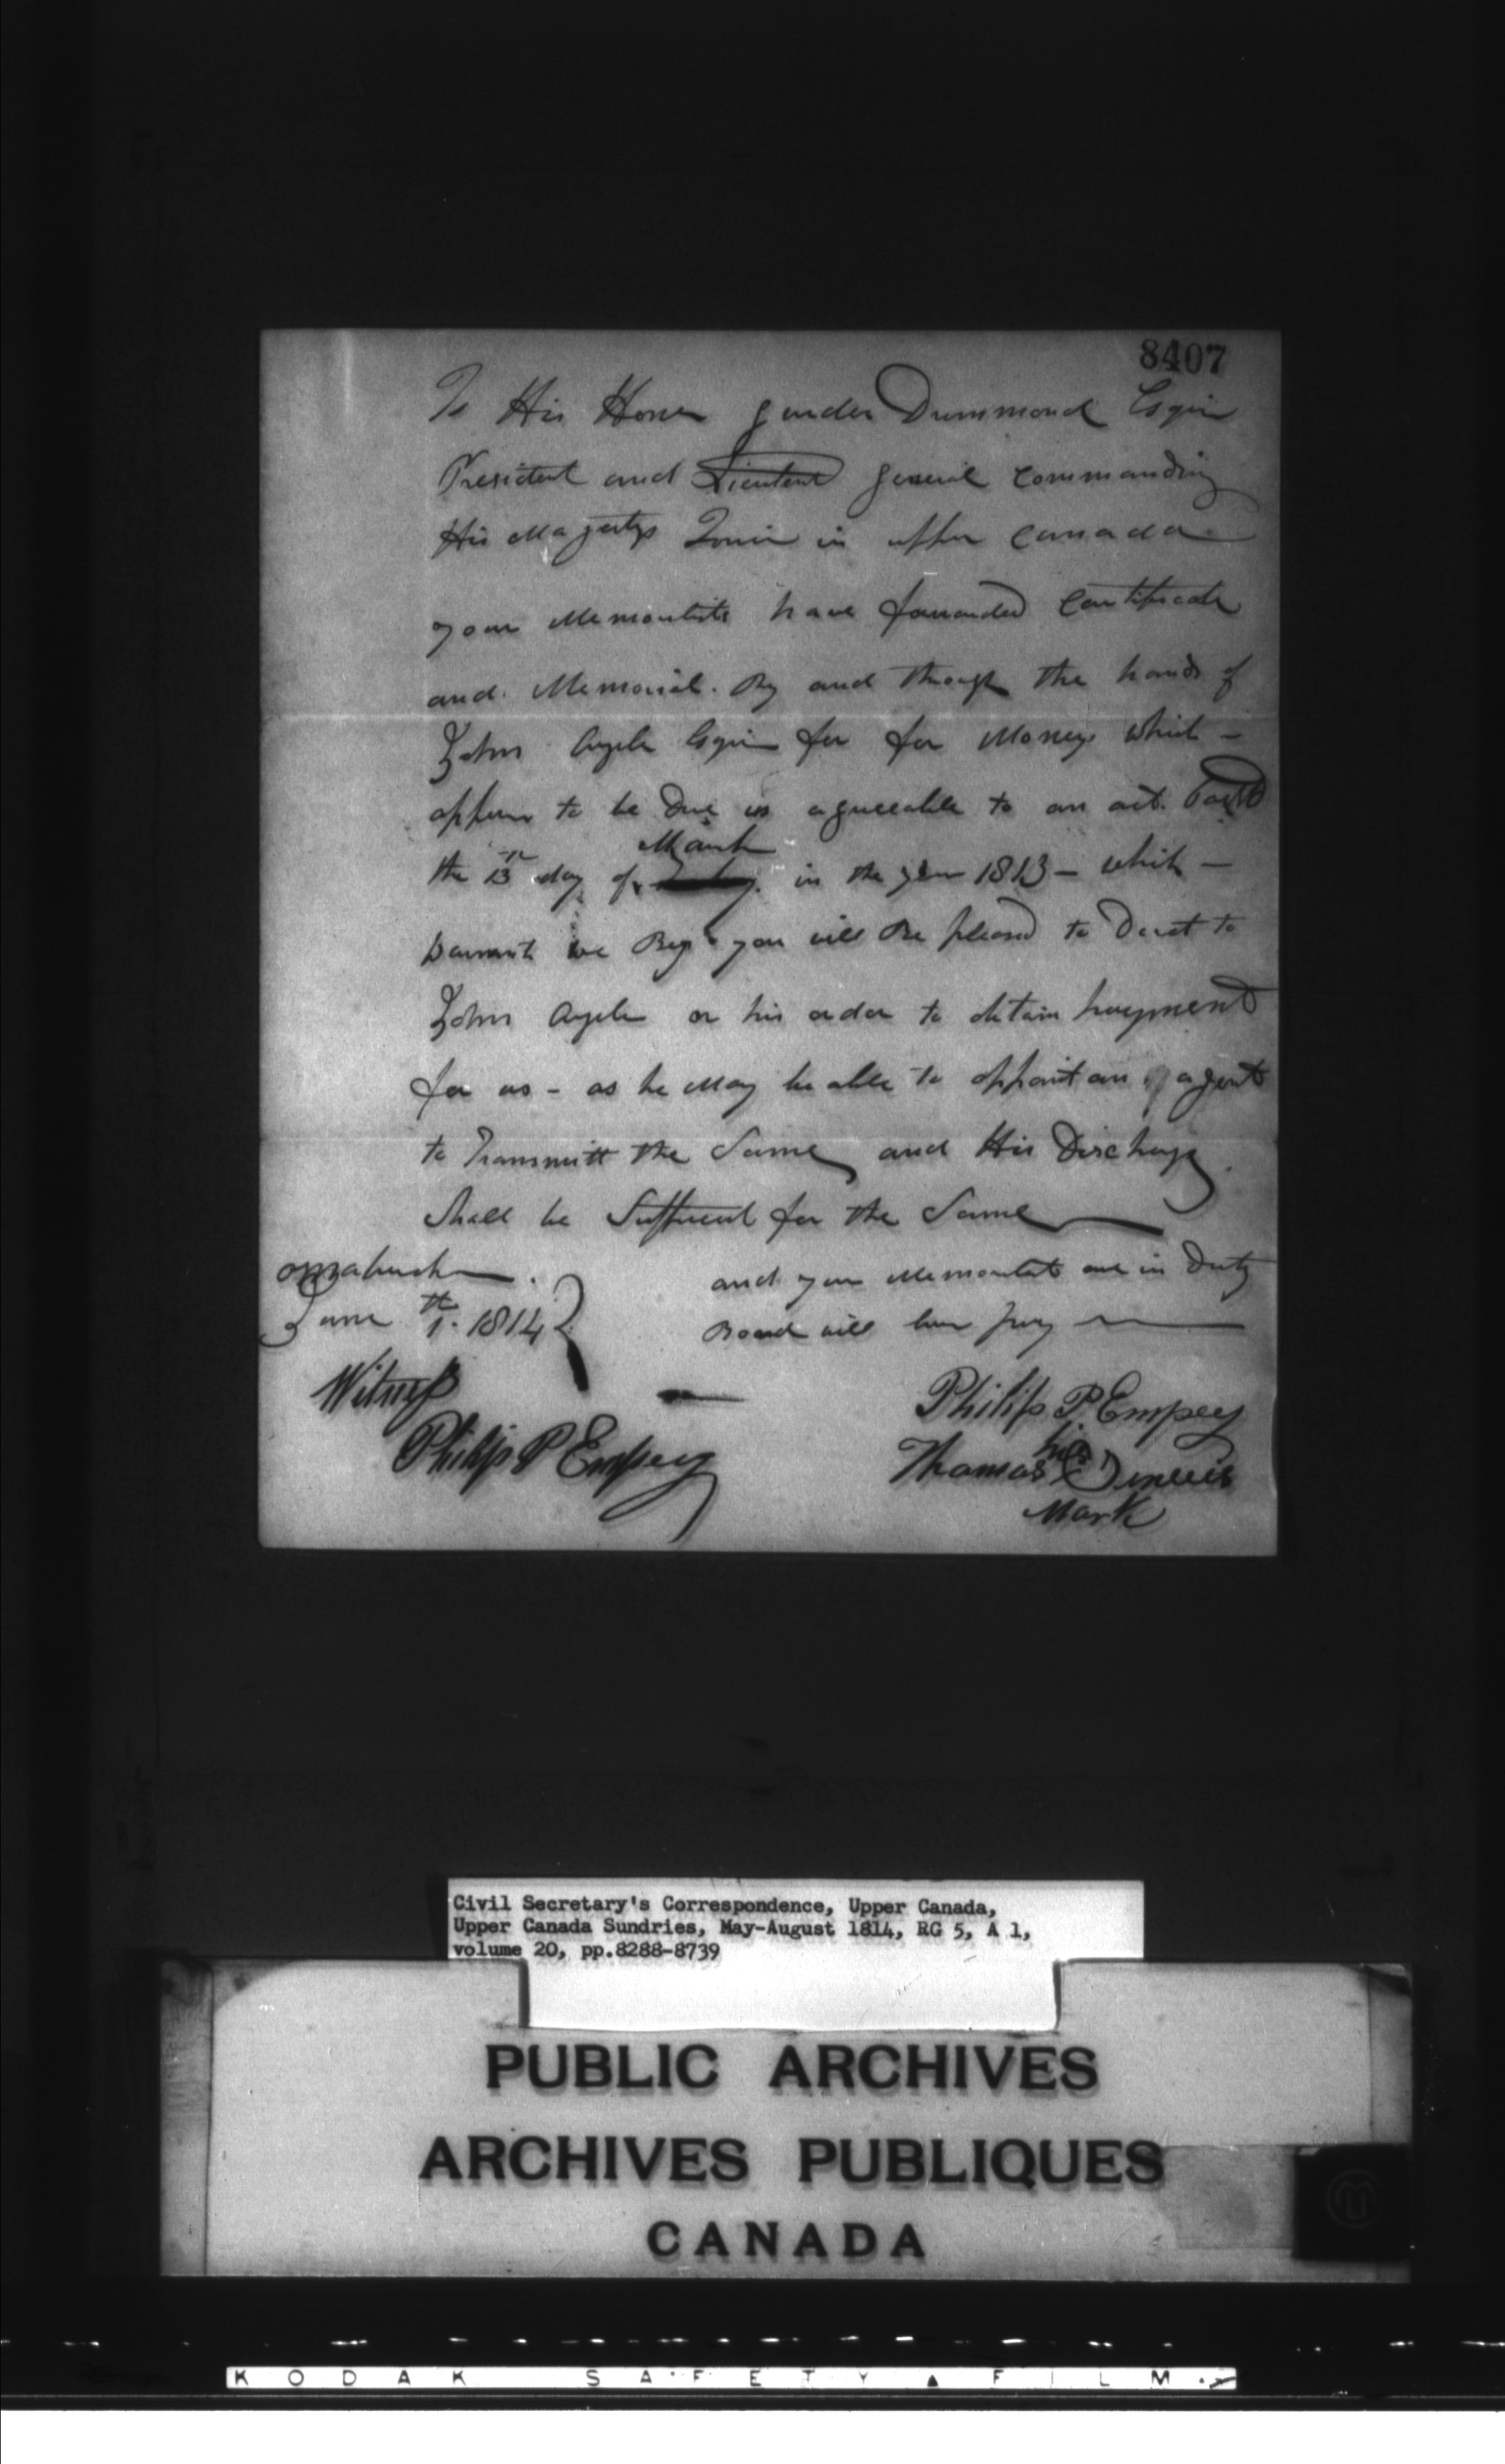 8407
To His Honor gorder Drummond Esqui
President and Lieutent general Commanding
His Magestys Forces in upper Canada
your Memorilists have forwarded Certificate
and Memorial. By and through the hands of
John Esqui for for Money which -
appear to be Due us agreeable to an act. Past
the 13th day of March in the year 1813 - which -
warrants we Beg you will Be pleased to Direct to
John or his order to obtain payment
for us - as he May be able to appoint an agent
to Transmitt the Same and His Discharge
Shall be Suffiecent for the Same
Osnabruck
June 1th. 1814
and your Memorilists are in Duty
Bound will ever pray
Witness
Philip P Empey
Philip P. Empey
Thomas his
Mark
Civil Secretary's Correspondence, Upper Canada,
Upper Canada Sundries, May-August 1814, RG 5, A 1,
volume 20, pp.8288-8739
PUBLIC ARCHIVES
ARCHIVES PUBLIQUES
CANADA
KODAK SAFETY ▲ FILM